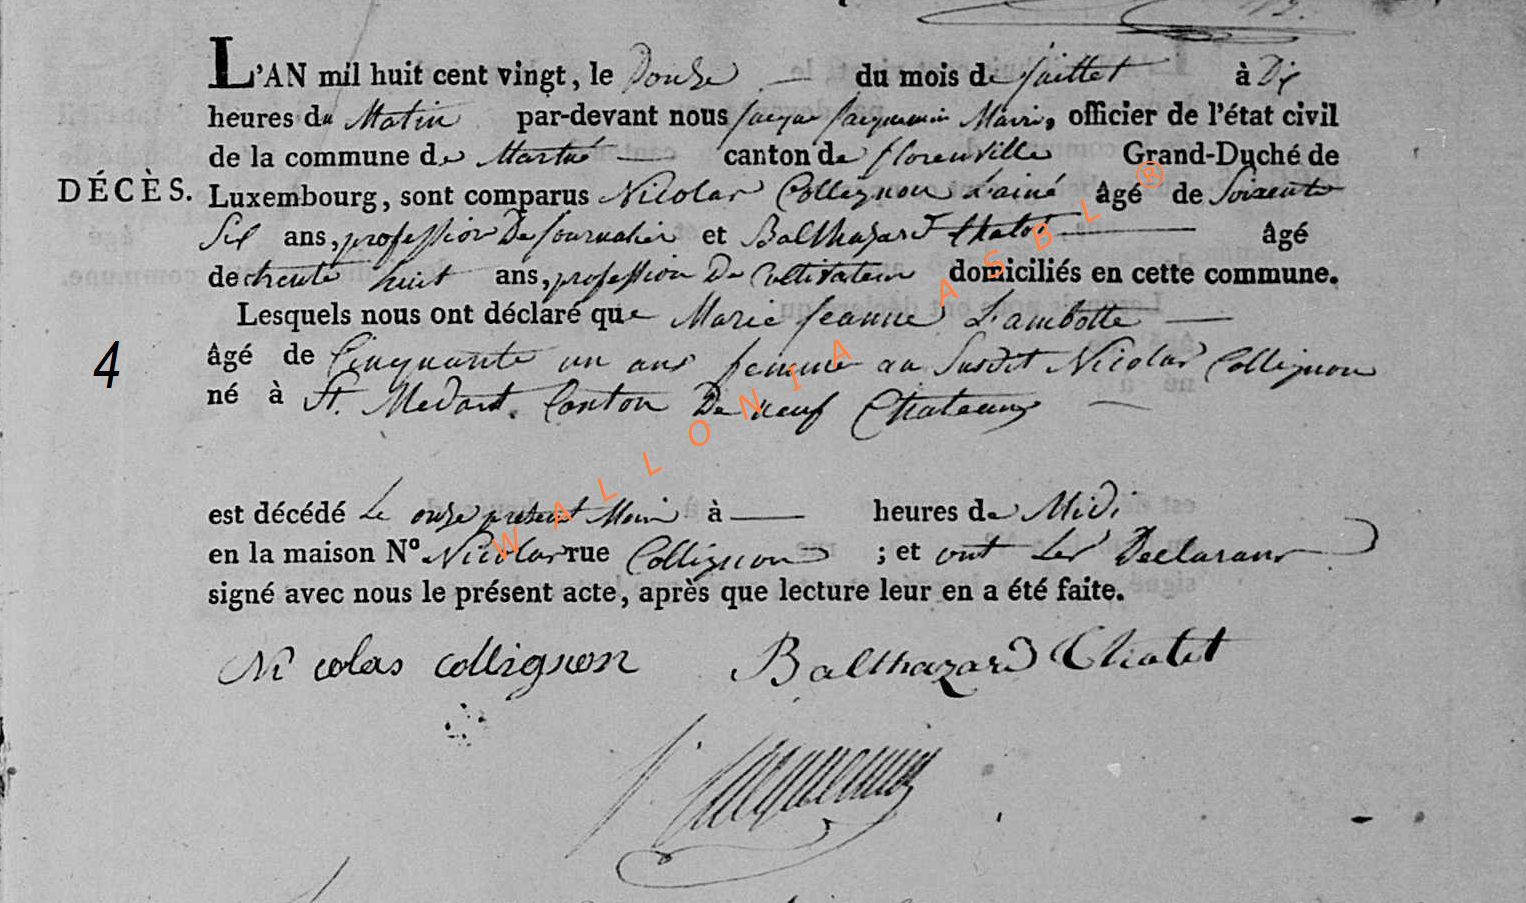 L'AN mil huit cent vingt, le Douze du mois de Juillet à Dix
heures du Matin par-devant nous Jacque Jacquemin Maire, officier de l'état civil
de la commune de Martué canton de florenville Grand-Duché de
DÉCÈS. Luxembourg, sont comparus Nicolas Collignon L'ainé âgé de Soixante
Six ans, profession De Journalier et Balthazard Chatot, âgé
de trente huit ans, profession De Cultivateur domiciliés en cette commune.
Lesquels nous ont déclaré que Marie Jeanne Lambotte
4 âgé de Cinquante un ans femme au Susdit Nicolas Collignon
né à St. Medard. Canton De neuf Chateaux
est décédé Le onze présent Mois à heures de Midi
en la maison N° Nicolas rue Collignon ; et ont Les Declarans
signé avec nous le présent acte, après que lecture leur en a été faite.
Nicolas collignon Balthazard Chatot
J. Jacquemin
WALLONIA ASBL ®